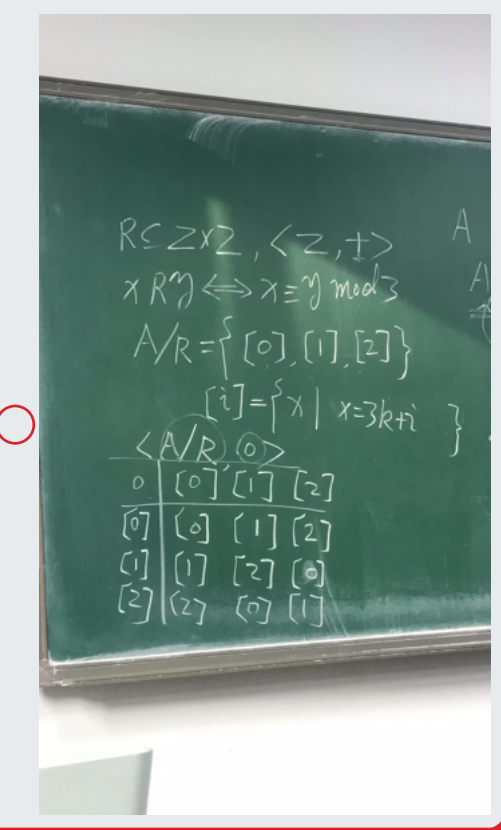 R⊆Z×Z, <Z,+> A
xRy⟺x≡y mod3 A
A/R={[0],[1],[2]}
[i]={x| x=3k+i }
<A/R, ○>
○ [0] [1] [2]
[0] [0] [1] [2]
[1] [1] [2] [0]
[2] [2] [0] [1]